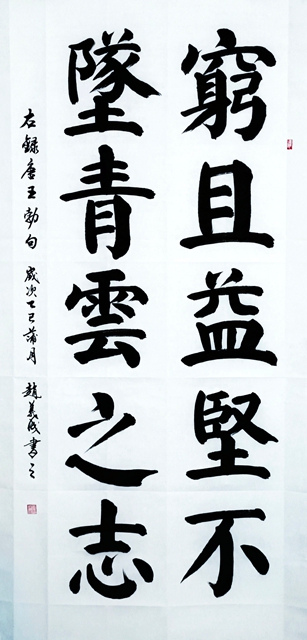 窮且益堅不
墜青雲之志
右録唐王勃句 歲次乙巳蒲月 趙美成書之